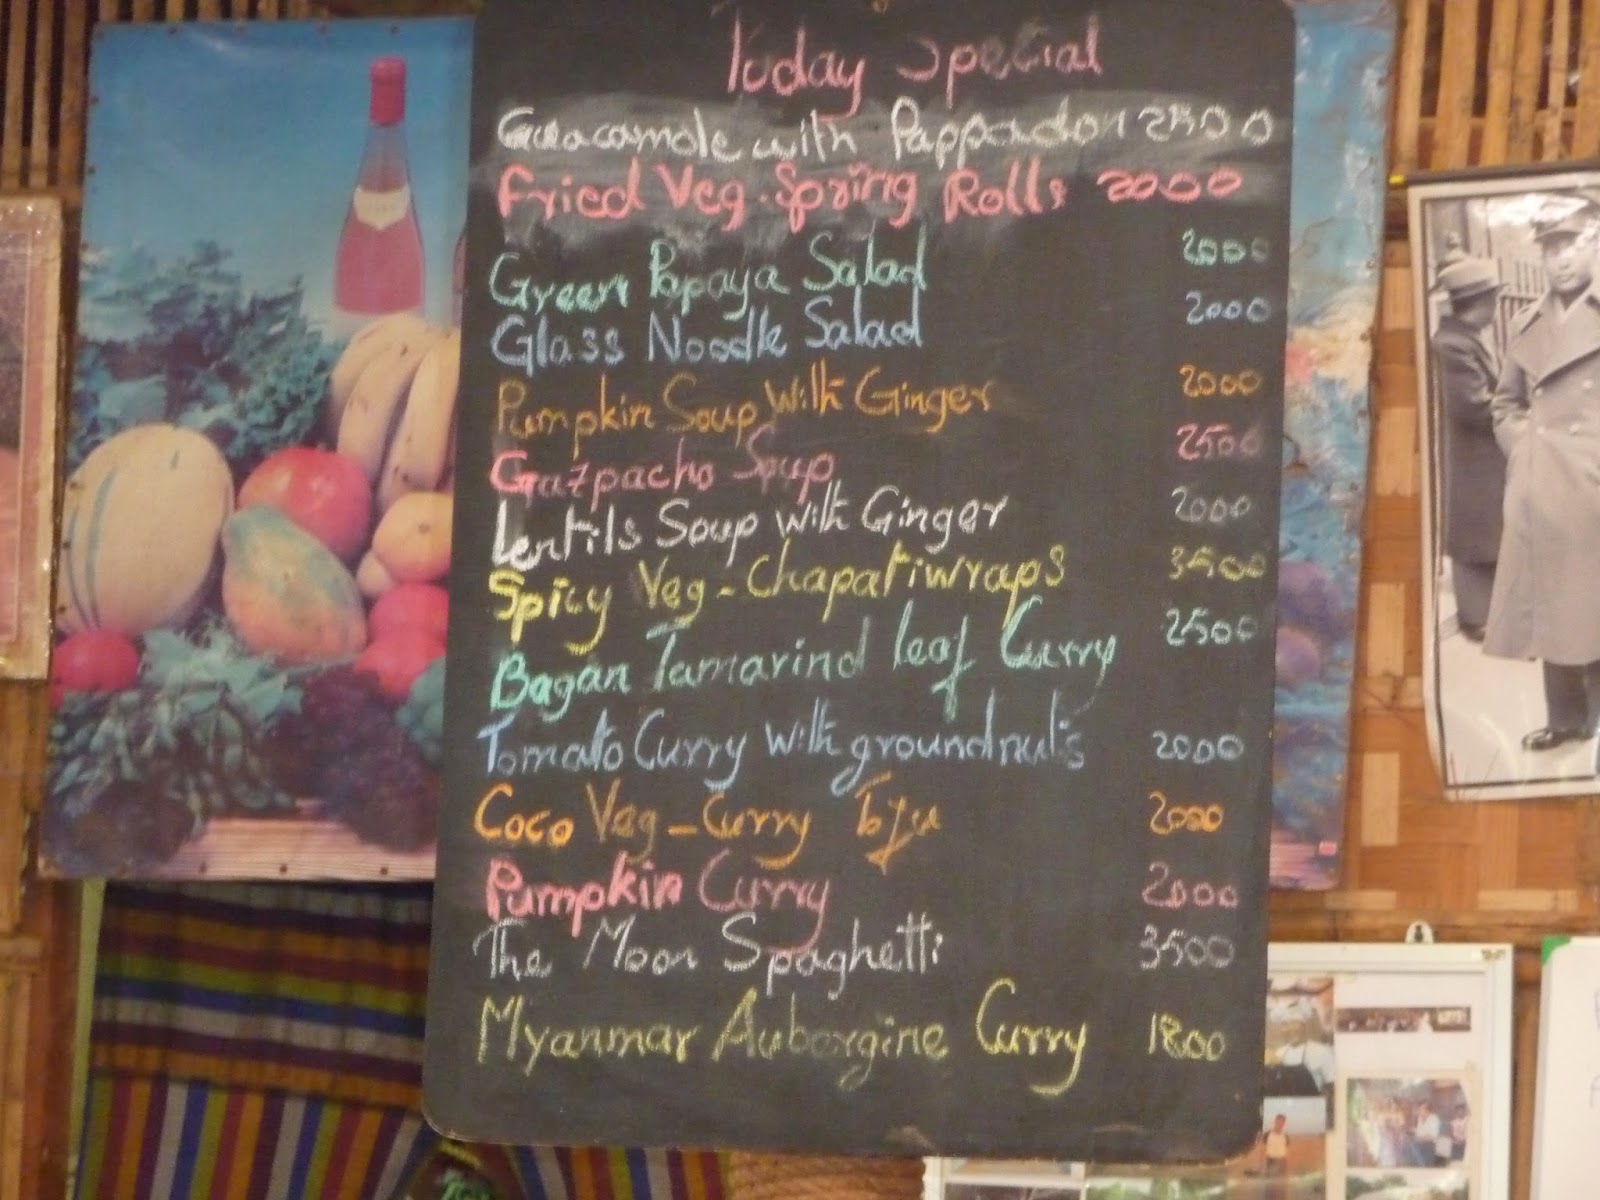 Today Special
Guacamole with Pappadon 2500
Fried Veg. Spring Rolls 2000
Green Papaya Salad 2000
Glass Noodle Salad 2000
Pumpkin Soup With Ginger 2000
Gazpacho Soup 2500
Lentils Soup with Ginger 2000
Spicy Veg - Chapati wraps 3500
Bagan Tamarind leaf Curry 2500
Tomato Curry with groundnuts 2000
Coco Veg - Curry Tofu 2000
Pumpkin Curry 2000
The Moon Spaghetti 3500
Myanmar Aubergine Curry 1800